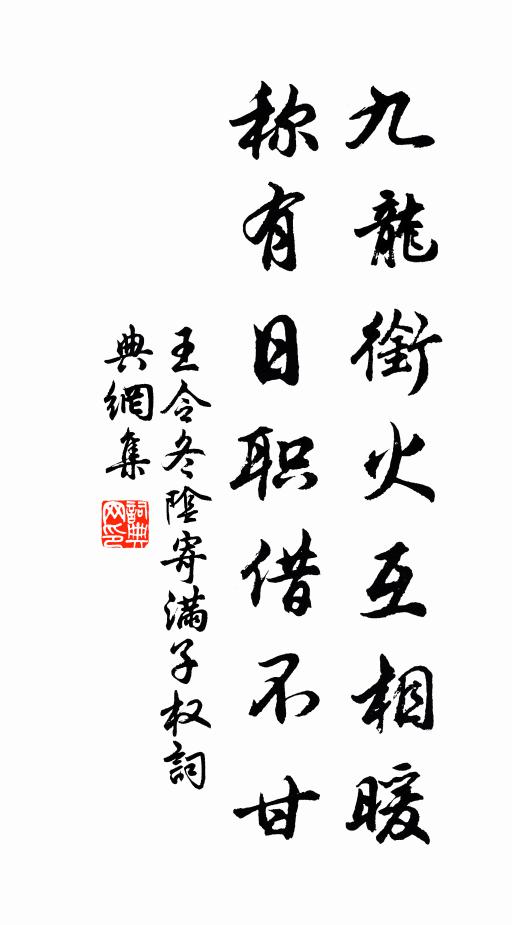 九龍銜火互相暖
称有日职借不甘
王令冬陰寄满子权詞
典網集
詞典网印